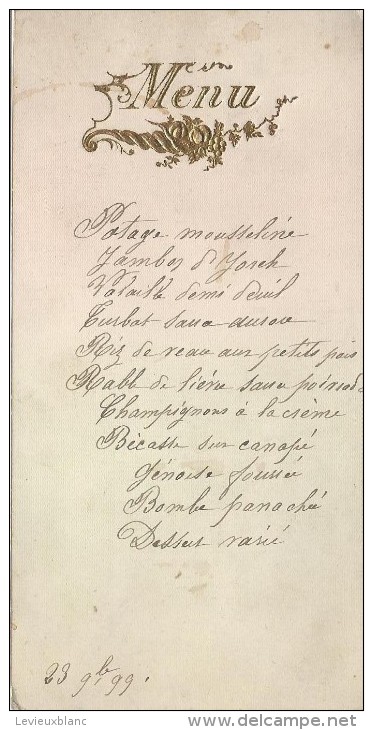 Menu
Potage mousseline
Jambon d'York
Volaille demi deuil
Turbot sauce aurore
Riz de veau aux petits pois
Rable de lièvre sauce poivrade
Champignons à la crème
Bécasse sur canapé
Génoise fourrée
Bombe panachée
Dessert varié
23 9b 99.
Levieuxblanc
delcampe.net